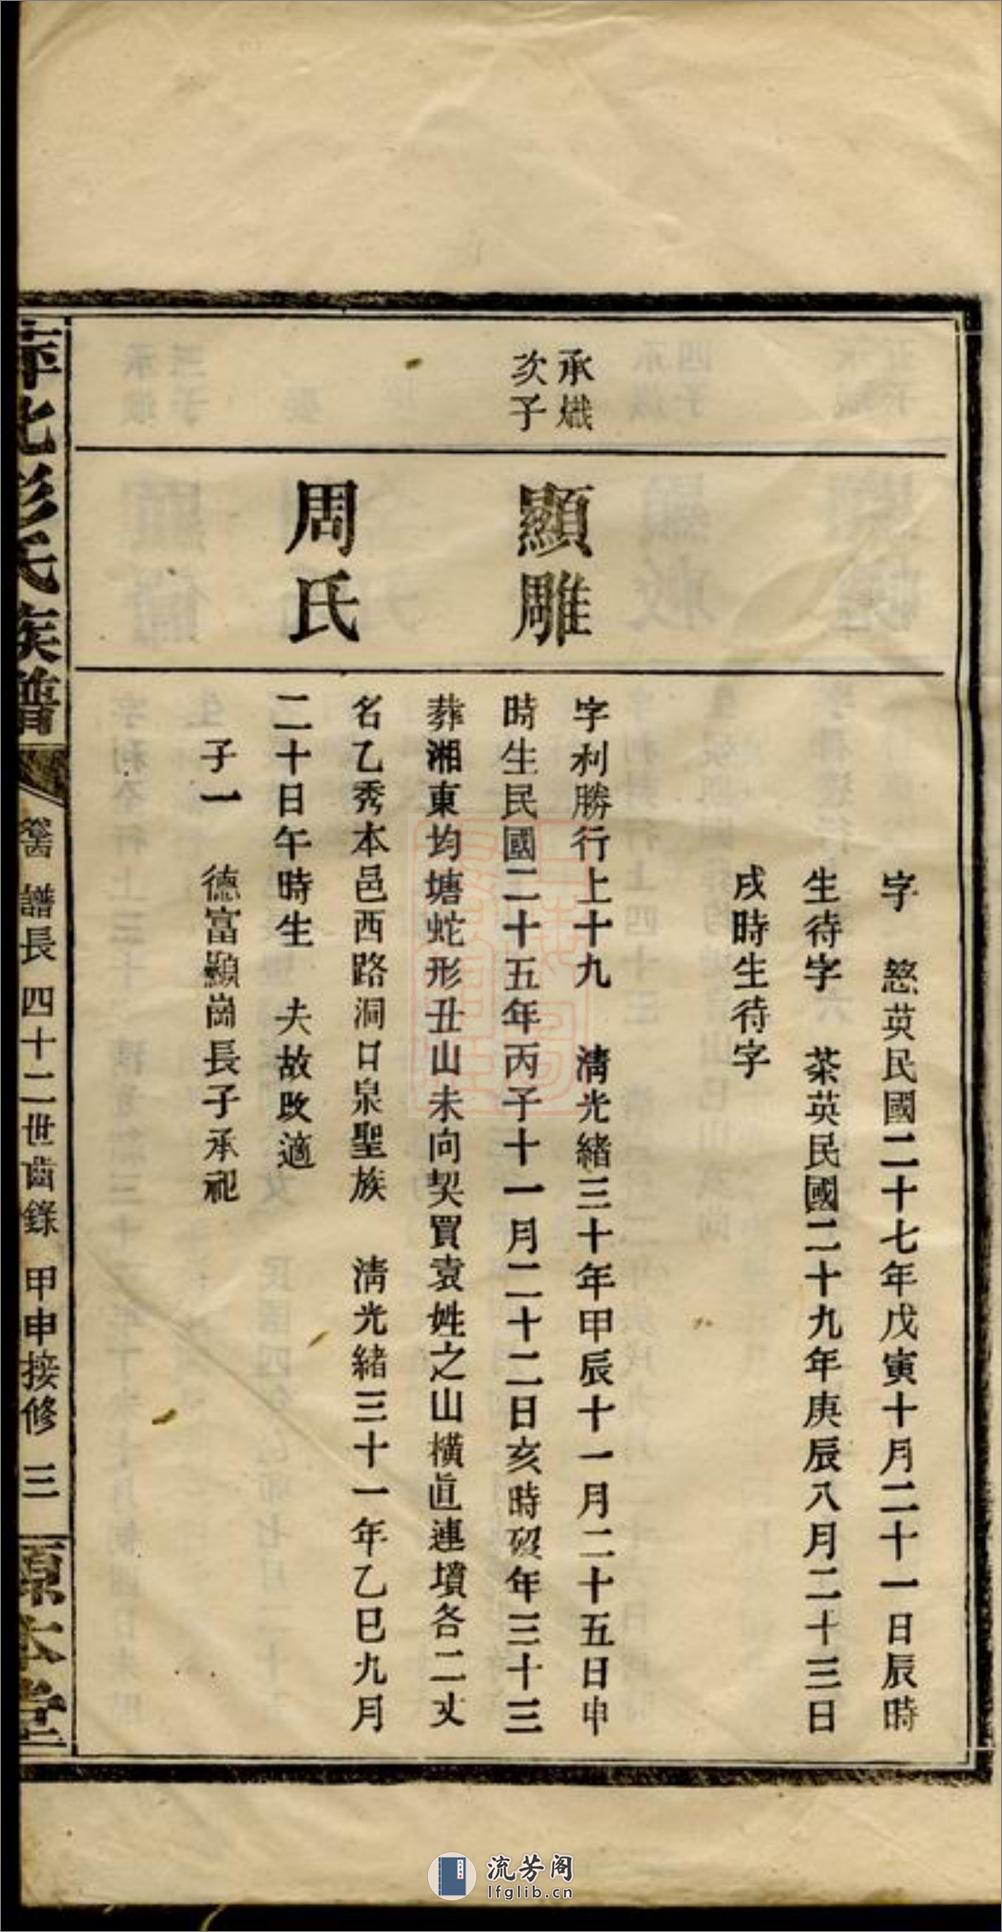 字 慈英民國二十七年戊寅十月二十一日辰時
生待字 茶英民國二十九年庚辰八月二十三日
戌時生待字
承熾
次子
顯雕
字利勝行上十九 清光緒三十年甲辰十一月二十五日申
時生民國二十五年丙子十一月二十二日亥時歿年三十三
葬湘東均塘蛇形丑山未向契買袁姓之山橫直連墳各二丈
周氏
名乙秀本邑西路洞口泉聖族 清光緒三十一年乙巳九月
二十日午時生 夫故改適
子一 德富顯崗長子承祀
萍北彭氏族譜 譜長 四十二世齒錄 甲申接修 三 源本堂
流芳阁
lfglib.cn